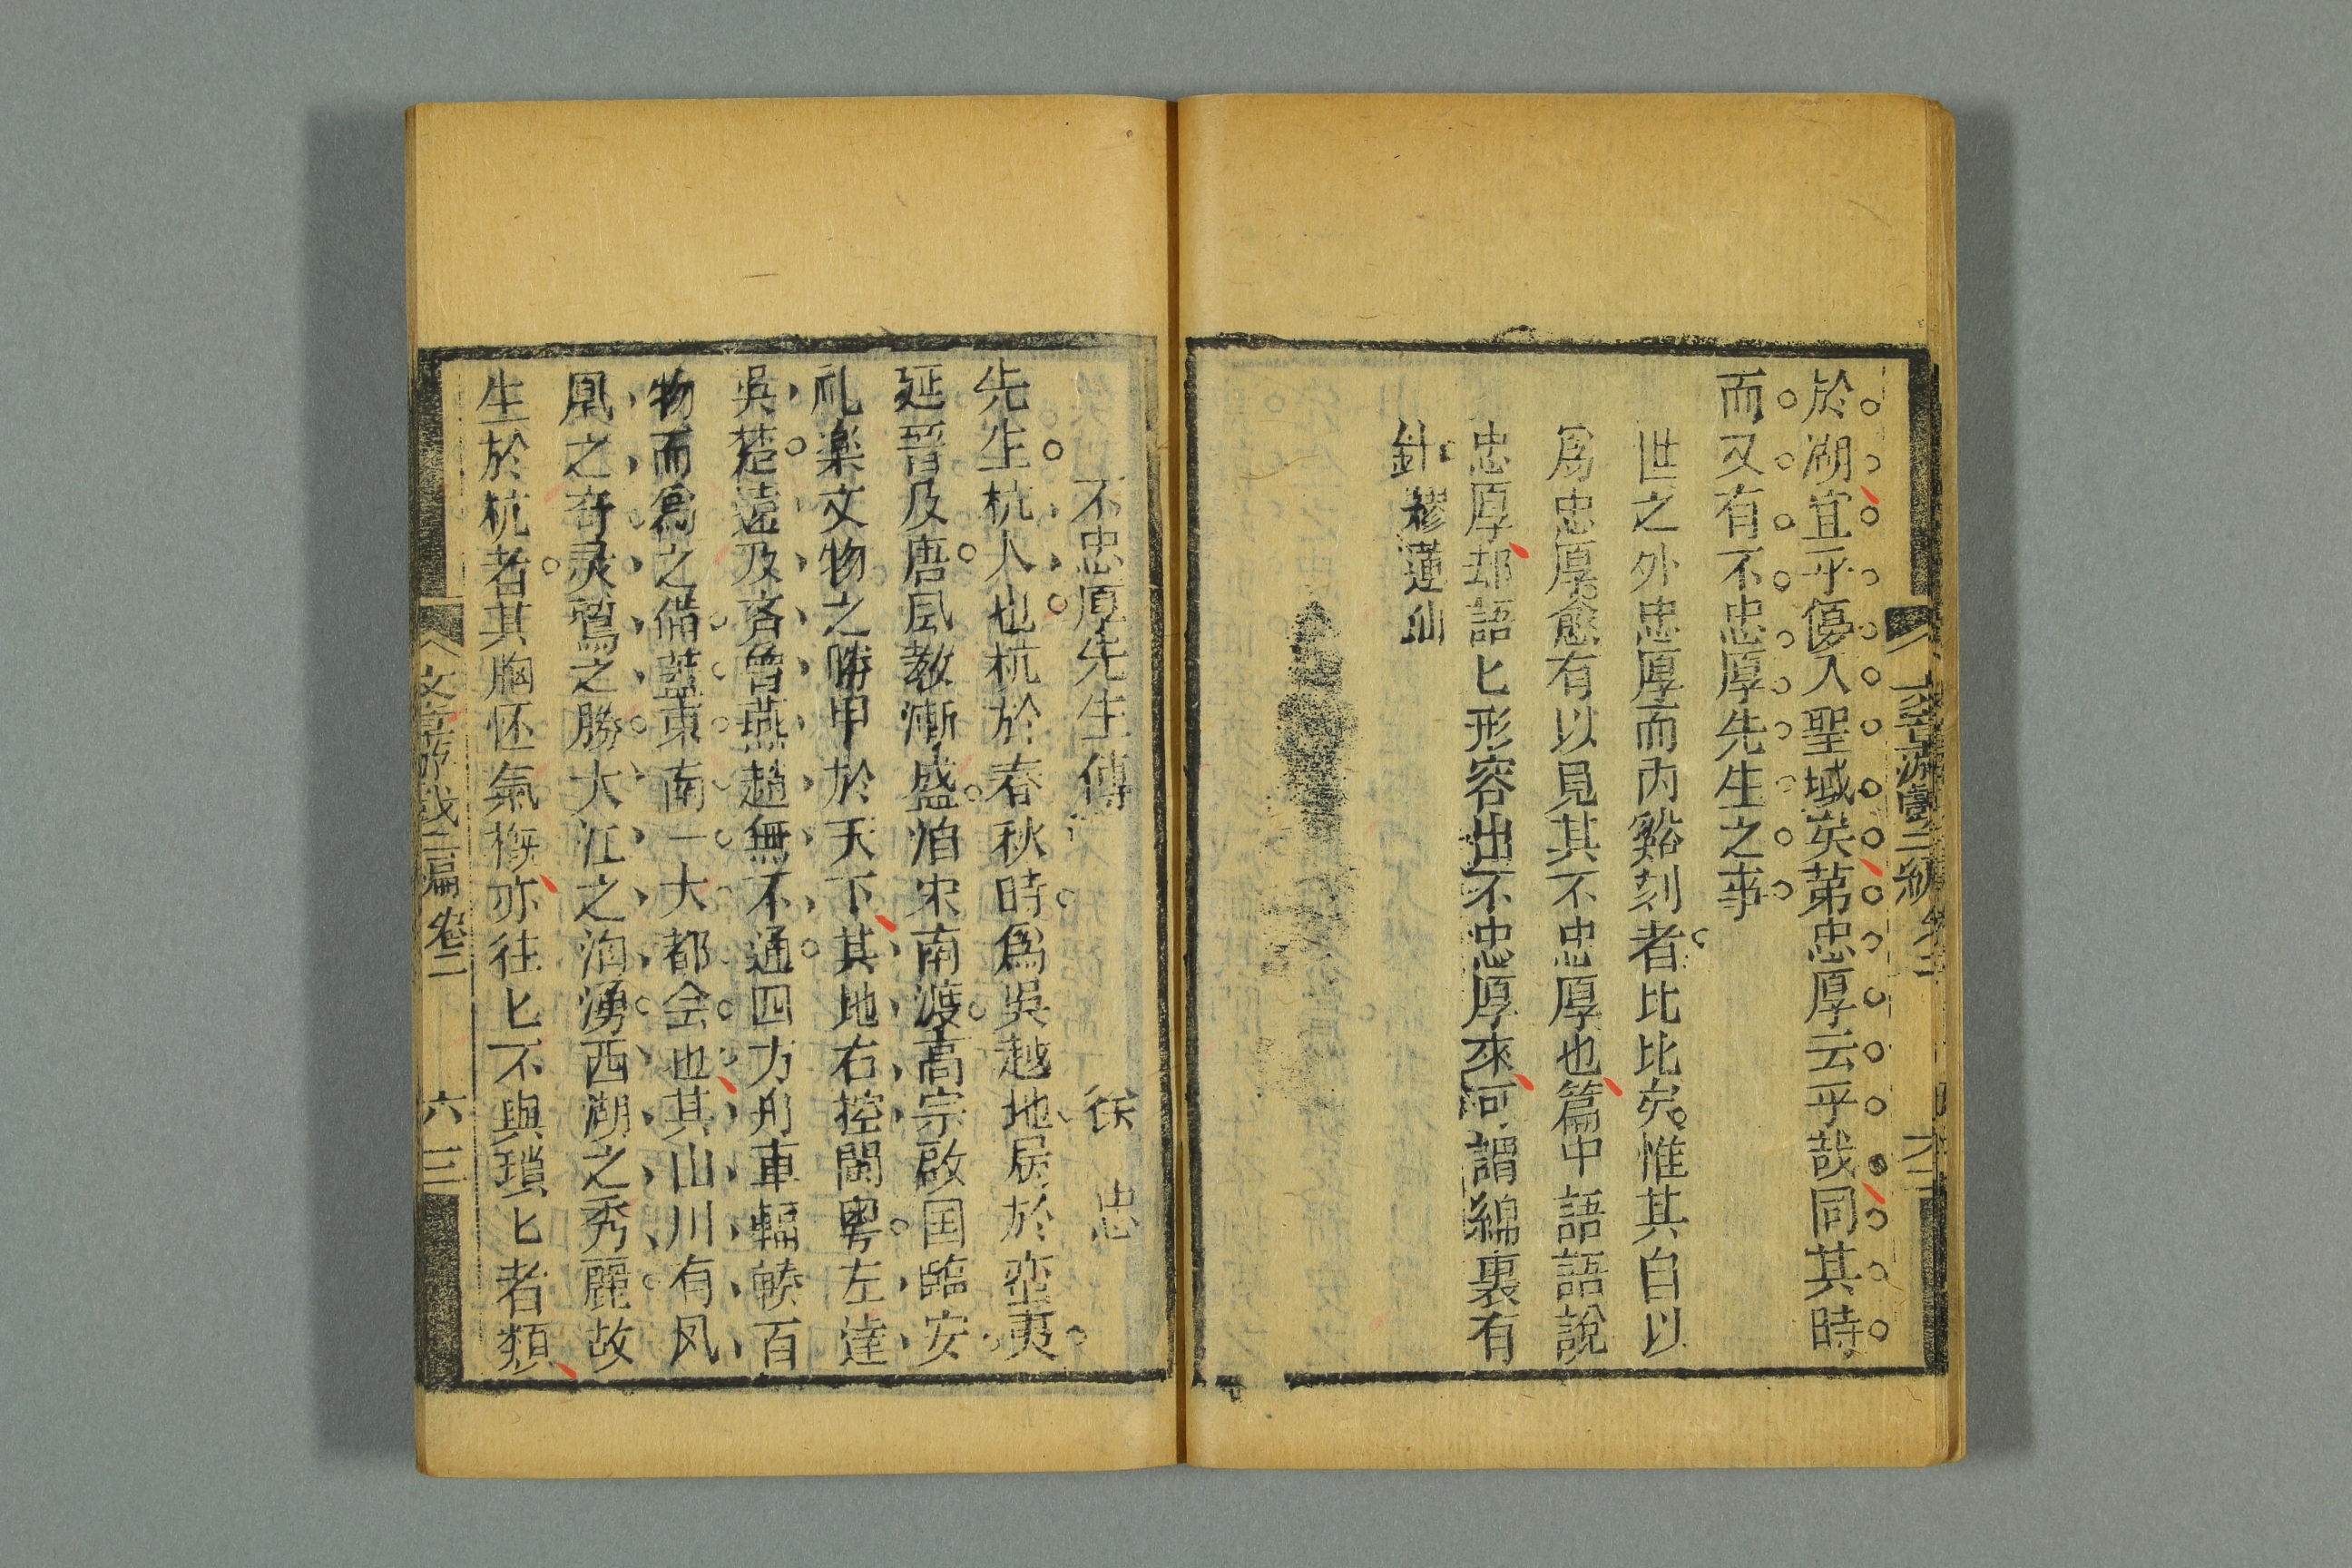 於湖宜乎優入聖域矣第忠厚云乎哉同其時
而又有不忠厚先生之事
世之外忠厚而內谿刻者比比矣惟其自以
爲忠厚愈有以見其不忠厚也篇中語語說
忠厚却語匕形容出不忠厚來可謂綿裏有
針 繆蓮仙
不忠厚先生傳 徐忠
先生杭人也杭於春秋時爲吳越地居於蛮夷
延晉及唐風敎漸盛怕宋南渡高宗啟国臨安
礼楽文物之勝甲於天下其地右控閩粵左達
吳楚遠及齐魯燕趙無不通四方舟車輻輳百
物而爲之備蓋東南一大都会也其山川有风
凰之奇灵鷲之勝大江之洶湧西湖之秀麗故
生於杭者其胸怀氣概亦往匕不與瑣匕者類
文章游戲三編 卷二 六三